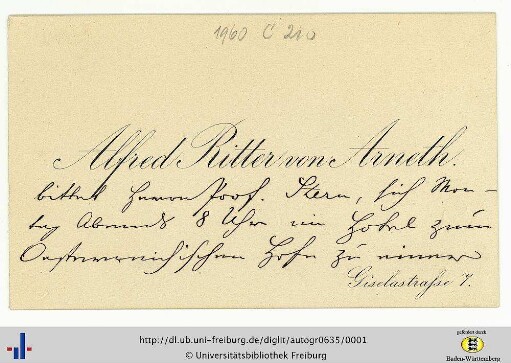 1960 C 210
Alfred Ritter von Arneth.
bittet Herrn Prof. Stern, sich Mon-
tag Abends 8 Uhr im Hotel zum
Oesterreichischen Hofe zu einer
Giselastraße 7.
gefördert durch
Baden-Württemberg
http://dl.ub.uni-freiburg.de/diglit/autogr0635/0001
© Universitätsbibliothek Freiburg